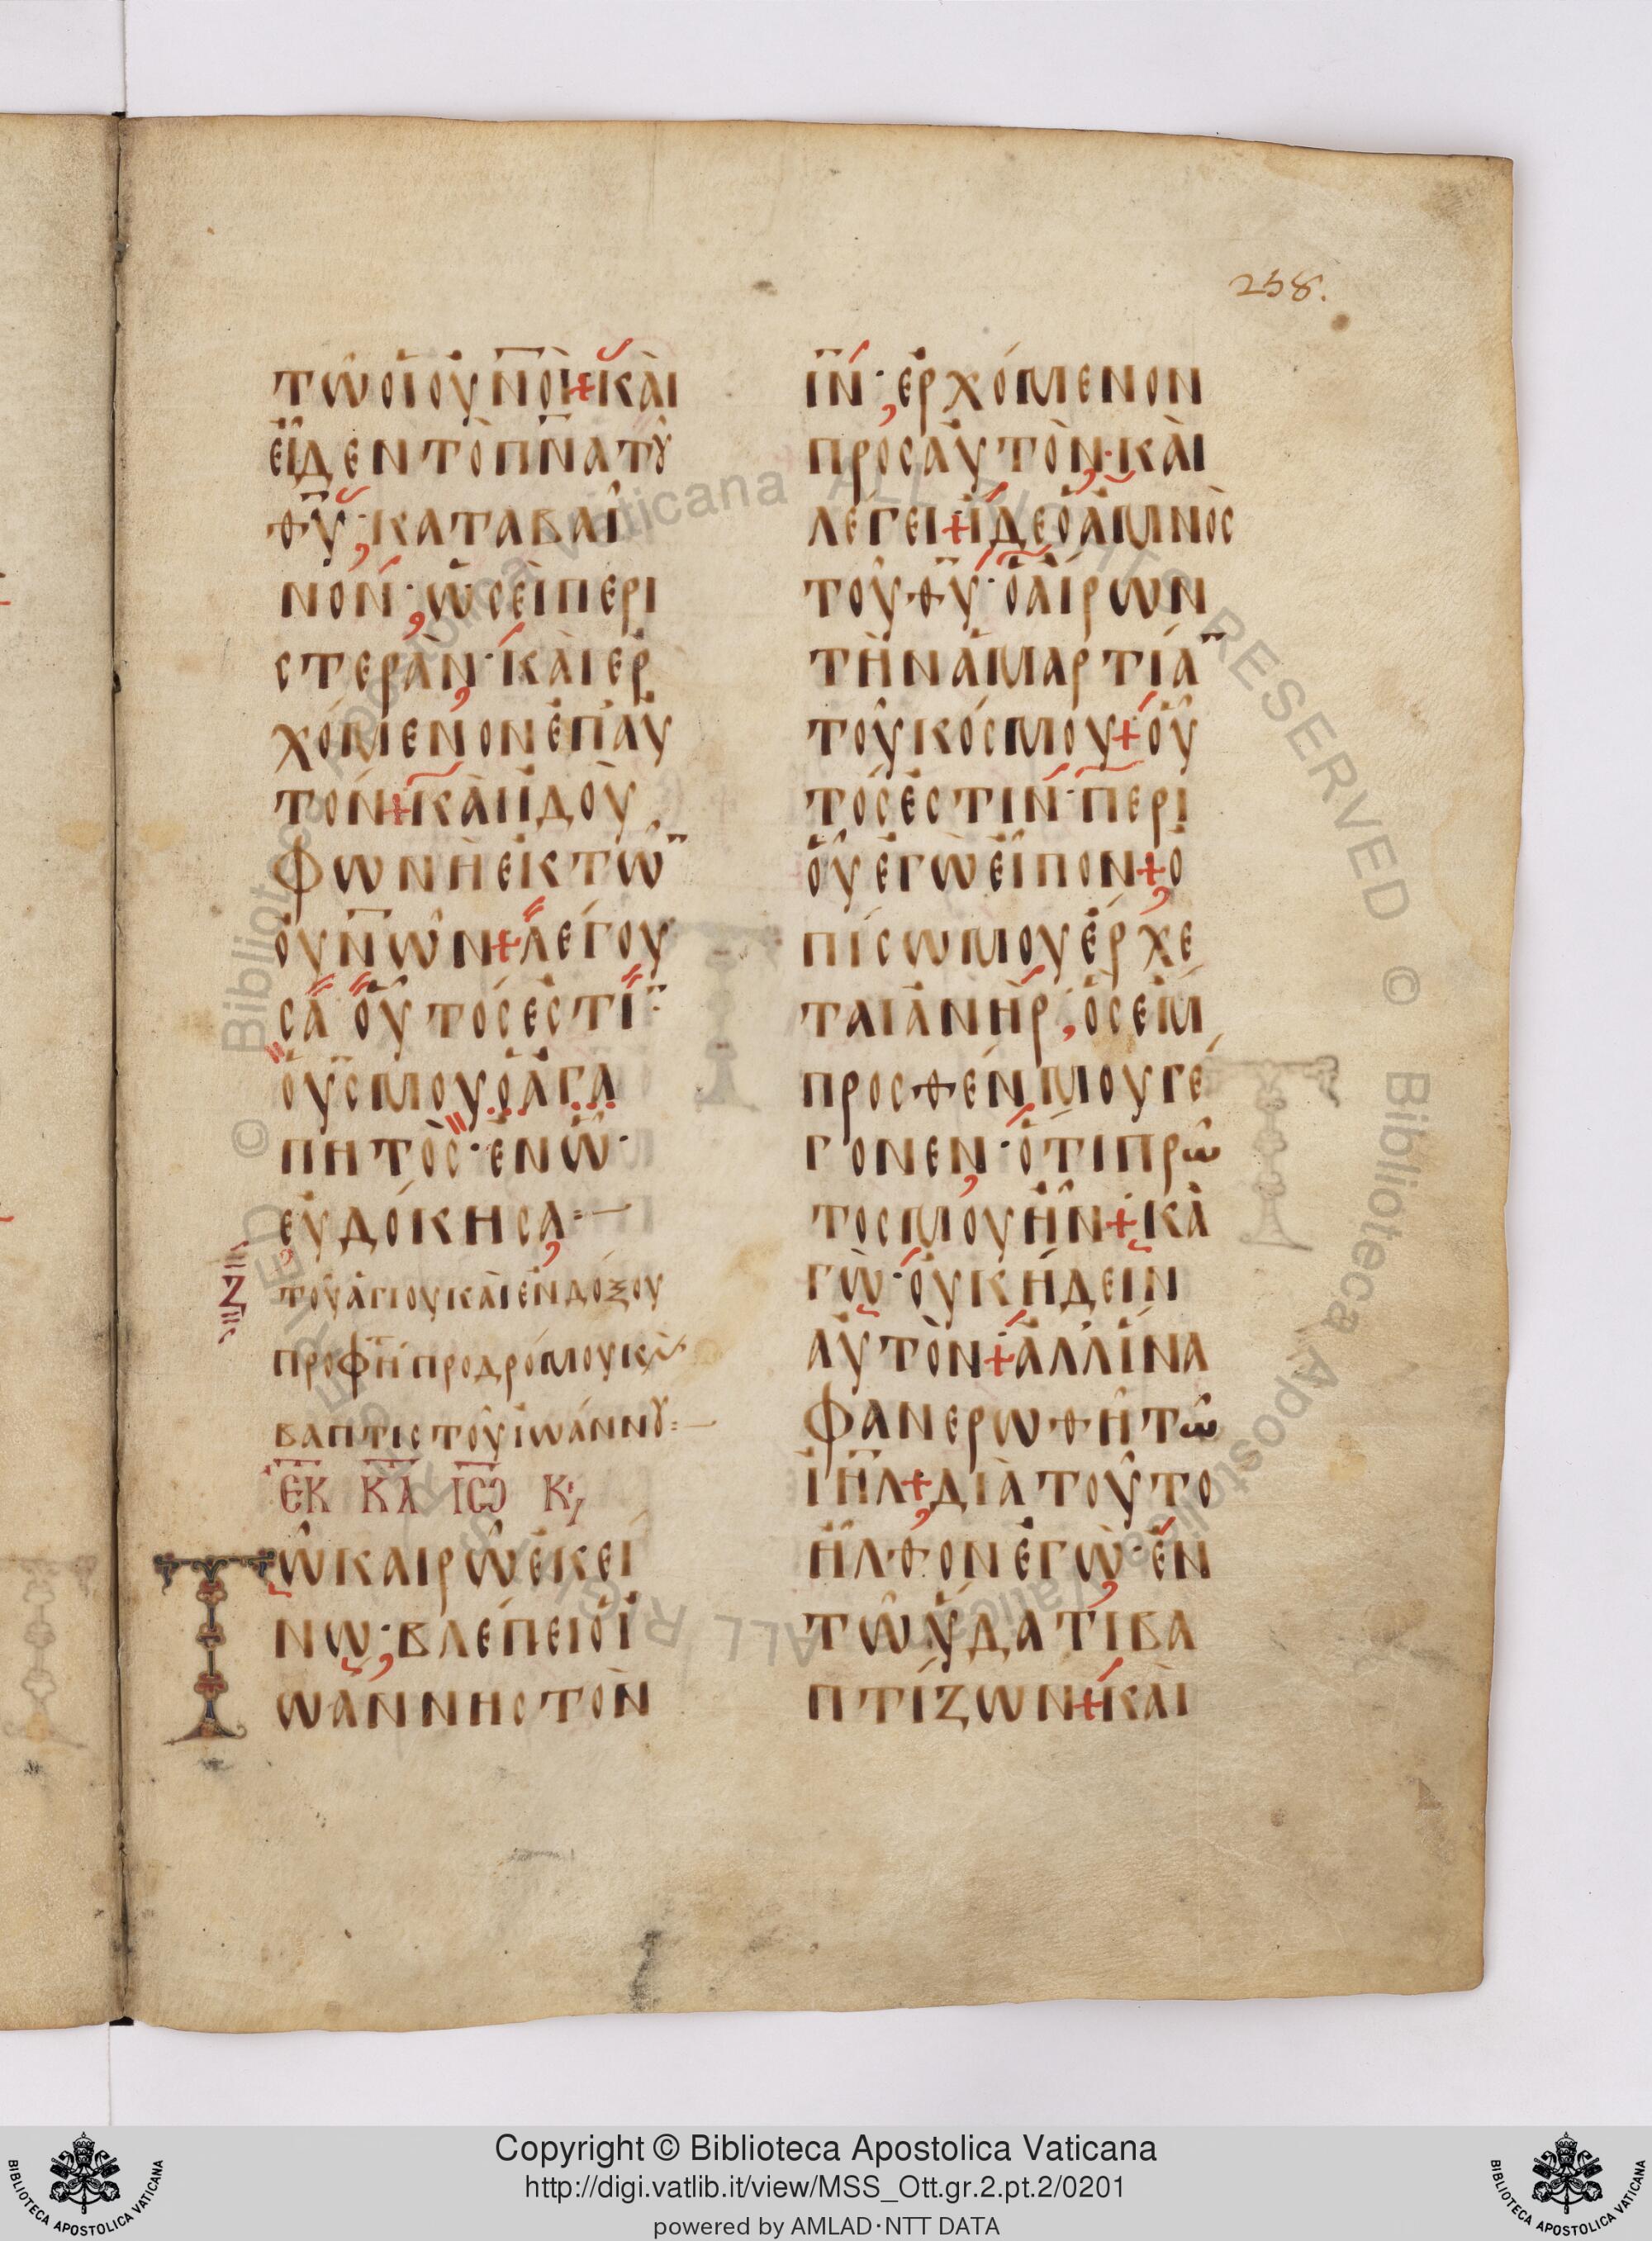 258.
τῶ οἱ οὐν̅οὶ + κὰι
ἐῖδεν τὸ πν̅α τȣ͂
θ̅υ̅· καταβαῖ
νον· ὡσεὶ περι
στερὰν· κὰι ἐρ
χόμενον ἐπ' ἀυ
τόν + κὰι ἰδοὺ
φωνὴ ἐκ τῶ̅
οὐν̅ῶν + λέγου
σα ὅυτός ἐστῑ·
ὁ υ̅ς μου ὁ ἀγα
πητὸς· ἐν ὧ·
ἐυδόκησα :—
Ζ
τοῦ ἁγίου κὰι ἐνδόξου
προφη̅ προδρόμου κὰι
βαπτιστοῦ ἰωάννȣ :—
ἐκ κλ ισω κ,
Τῶ καιρῶ ἐκεί
νω· βλέπει ὁ ἰ
ωάννης τὸν
ι̅ν̅· ἐρχόμενον
προς ἀυτὸν· κὰι
λέγει + ἴδε ὁ ἀμνὸς
τοῦ θ̅υ̅· ὁ ἀίρων
τὴν ἁμαρτία̅
τοῦ κόσμου + ὅυ
τός ἐστιν· περὶ
ὅυ ἐγὼ ἐῖπον + ὀ
πίσω μου ἔρχε
ται ἀνὴρ, ὃς ἔμ
προσθέν μου γέ
γονεν· ὅτι πρῶ
τος μου ἦν + κἀ
γὼ· οὐκ ἤδειν
ἀυτὸν + ἀλλ ἵνα
φανερωθῆ τῶ
ἰη̅λ + διὰ τοῦτο
ἦλθον ἐγὼ· ἐν
τῶ ὕδατι βα
πτίζων + κὰι
Copyright © Biblioteca Apostolica Vaticana
http://digi.vatlib.it/view/MSS_Ott.gr.2.pt.2/0201
powered by AMLAD·NTT DATA